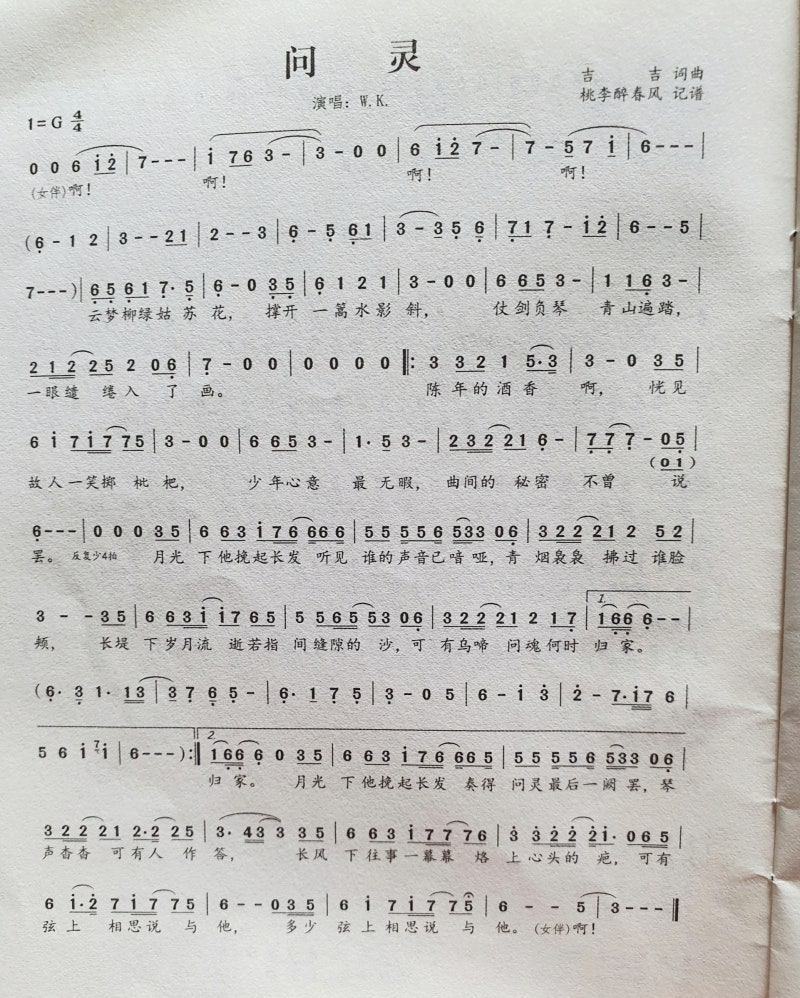 问 灵
吉 吉 词曲
演唱：W.K.
桃李醉春风 记谱
1=G 4/4
0 0 6 i 2 | 7 - - - | i 7 6 3 - | 3 - 0 0 | 6 i 2 7 - | 7 - 5 7 i | 6 - - - |
(女伴)啊！ 啊！ 啊！ 啊！
(6 - 1 2 | 3 - - 2 1 | 2 - - 3 | 6 - 5 6 1 | 3 - 3 5 6 | 7 1 7 - i 2 | 6 - - 5 |
7 - - -) | 6 5 6 1 7· 5 | 6 - 0 3 5 | 6 1 2 1 | 3 - 0 0 | 6 6 5 3 - | 1 1 6 3 - |
云梦柳绿姑 苏 花， 撑开 一篙水影 斜， 仗剑负琴 青山遍踏，
2 1 2 2 5 2 0 6 | 7 - 0 0 | 0 0 0 0 ‖: 3 3 2 1 5·3 | 3 - 0 3 5 |
一眼缱 绻入 了 画。 陈 年的酒香 啊， 恍见
6 i 7 i 7 7 5 | 3 - 0 0 | 6 6 5 3 - | 1· 5 3 - | 2 3 2 2 1 6 - | 7 7 7 - 0 5 |
(0 1)
故人一笑掷 枇 杷， 少年心意 最 无暇， 曲间的 秘密 不曾 说
6 - - - | 0 0 0 3 5 | 6 6 3 i 7 6 6 6 6 | 5 5 5 5 6 5 3 3 0 6 | 3 2 2 2 1 2 5 2 |
罢。 反复少4拍 月光 下他挽起长发 听见 谁的声音已喑 哑，青 烟袅袅 拂过 谁脸
3 - - 3 5 | 6 6 3 i i 7 6 5 | 5 5 6 5 5 3 0 6 | 3 2 2 2 1 2 1 7 | 1. 1 6 6 6 - - |
颊， 长堤 下岁月流 逝若指 间缝隙的 沙，可 有乌啼 问魂何时 归 家。
(6· 3 1· 1 3 | 3 7 6 5 - | 6· 1 7 5 | 3 - 0 5 | 6 - i 3 | 2 - 7· i 7 6 |
5 6 i 7 i | 6 - - -) :‖ 2. 1 6 6 6 0 3 5 | 6 6 3 i 7 6 6 6 5 | 5 5 5 5 6 5 3 3 0 6 |
归 家。 月光 下他挽起长发 奏得 问灵最后一阙 罢，琴
3 2 2 2 1 2·2 2 5 | 3· 4 3 3 3 5 | 6 6 3 i 7 7 7 6 | 3 3 2 2 2 i· 0 6 5 |
声杳杳 可有人 作 答， 长风 下往事一幕幕 烙 上心头的 疤，可有
6 i·2 7 i 7 7 5 | 6 - - 0 3 5 | 6 i 7 i 7 7 5 | 6 - - 5 | 3 - - - ‖
弦上 相思说 与 他， 多少 弦上相思说 与 他。(女伴)啊！